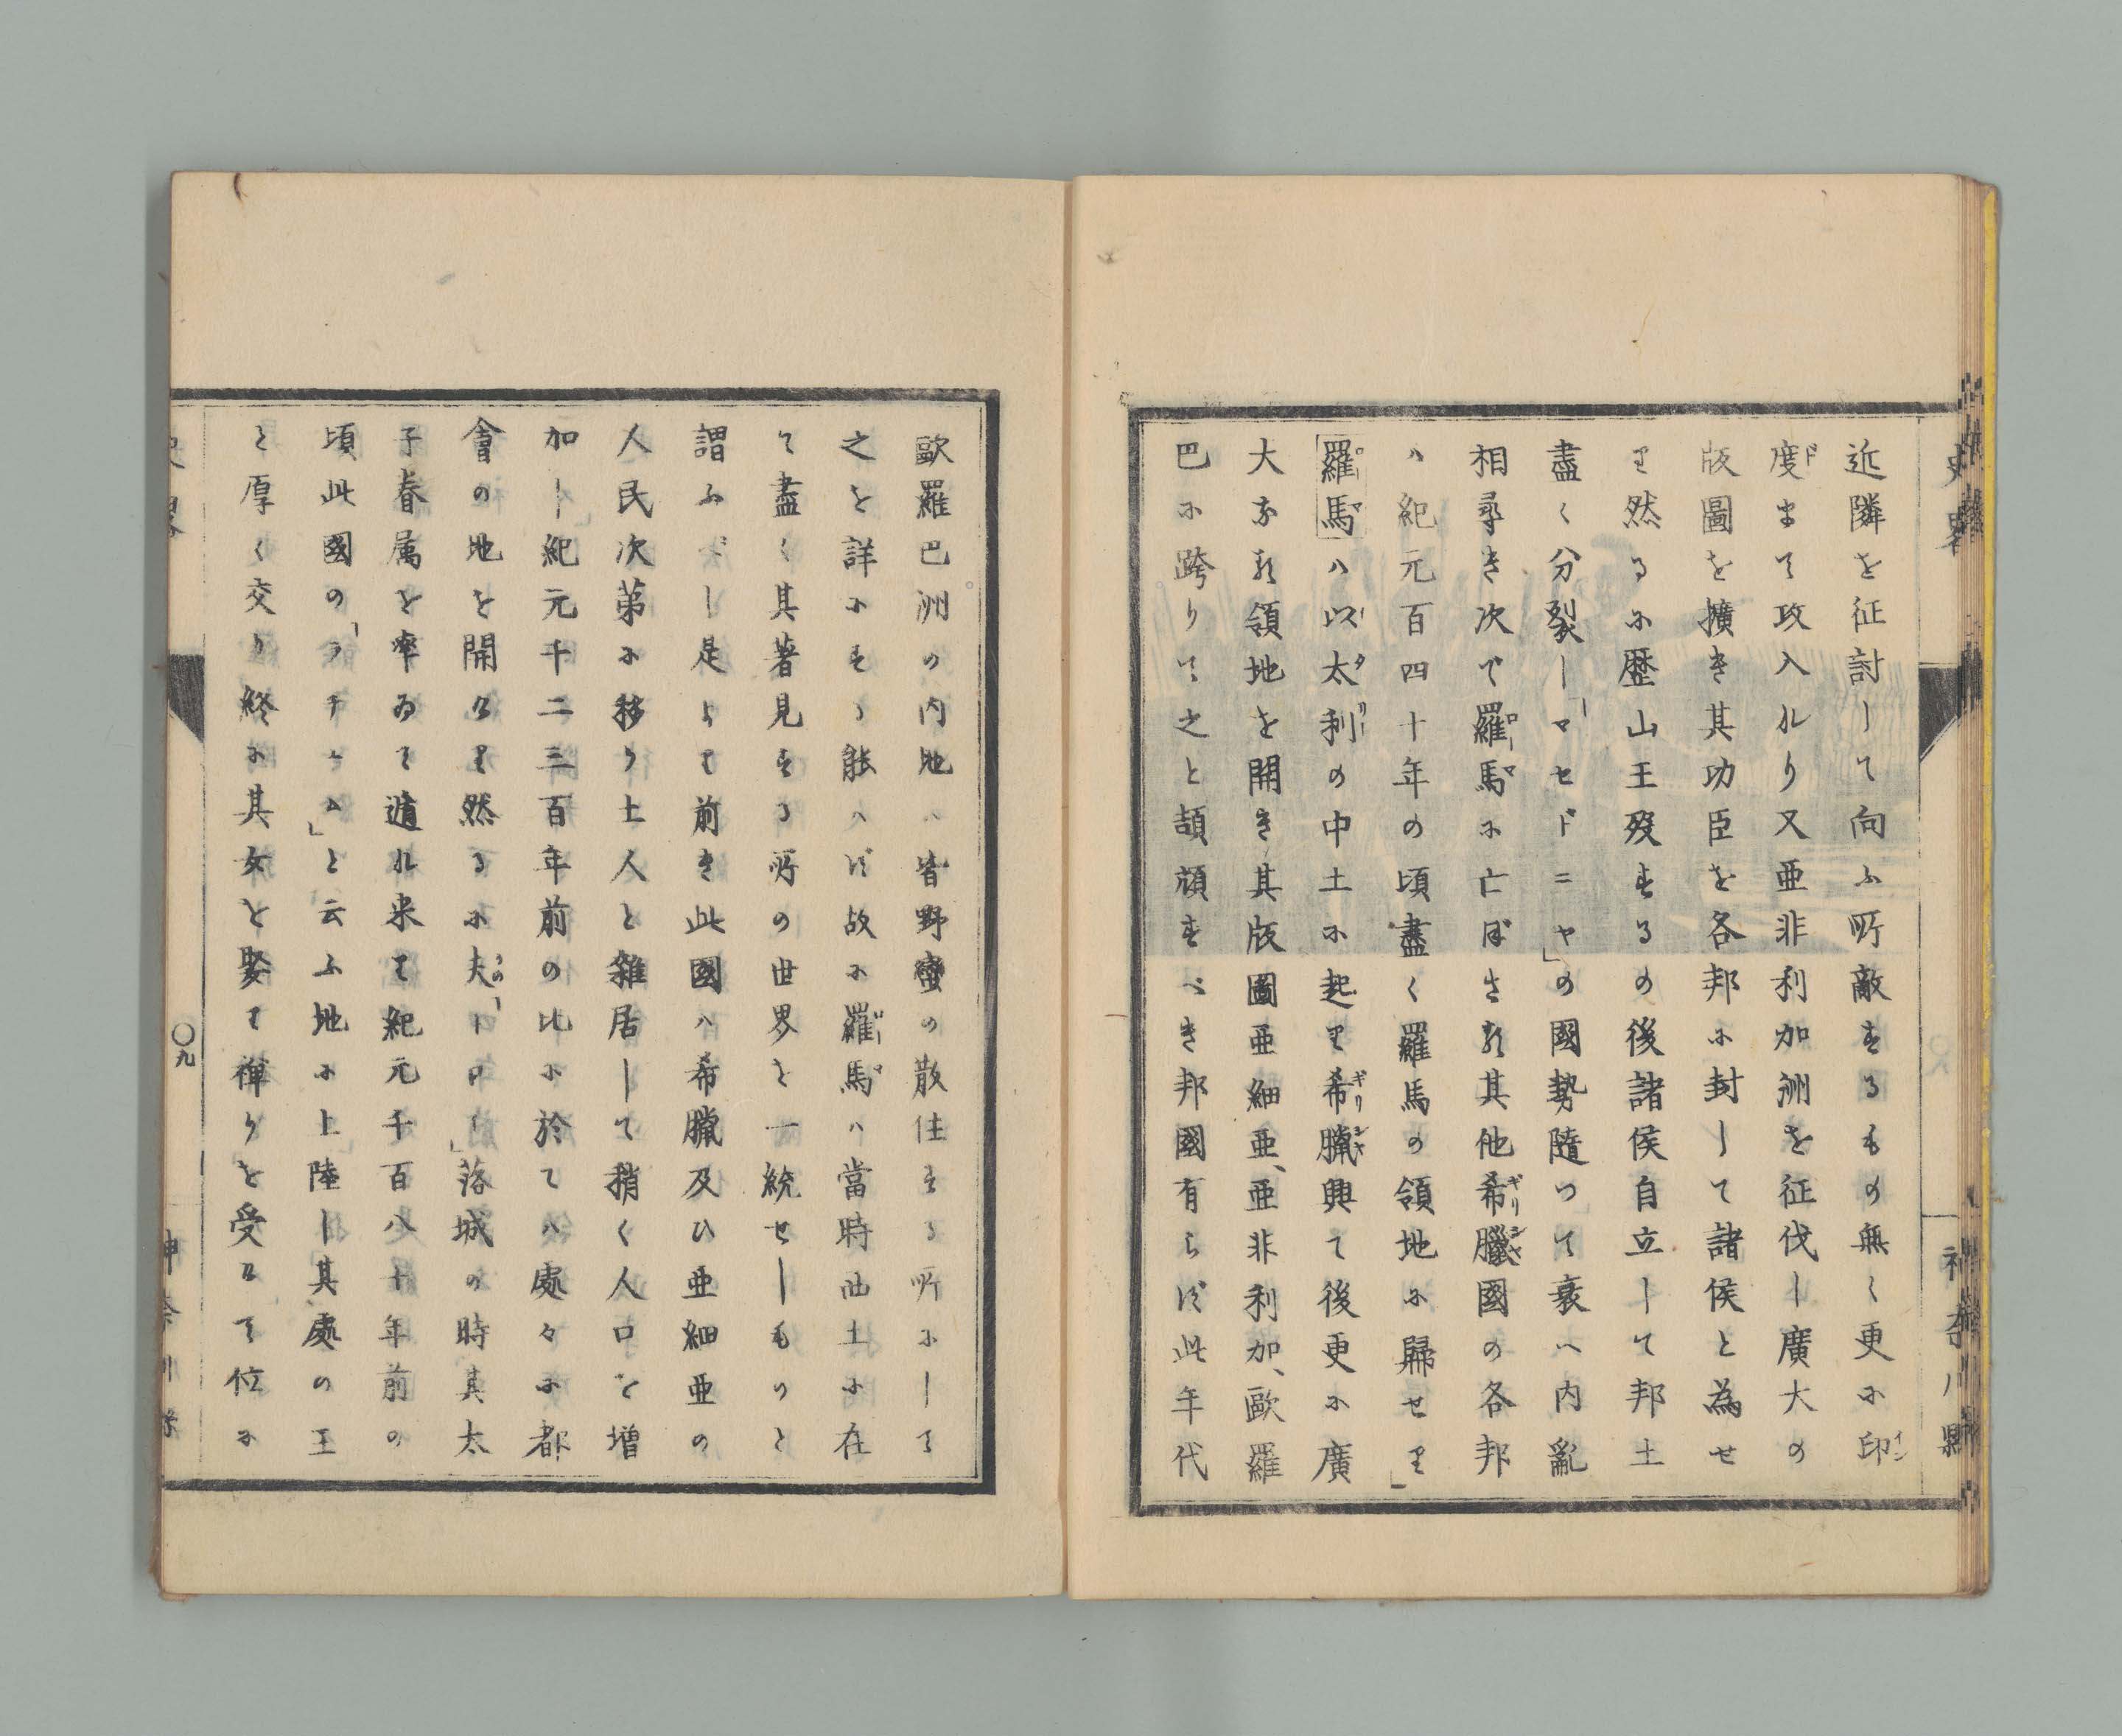 近隣を征討して向ふ所敵するもの無く更に印
度まて攻入ルり又亜非利加洲を征伐し廣大の
版圖を擴き其功臣を各邦に封して諸侯と為せ
り然るに歴山王歿するの後諸侯自立して邦土
盡く分裂し「マセドニヤ」の國勢隨つて衰へ内亂
相尋き次で羅馬に亡ぼさる其他希臘國の各邦
ハ紀元百四十年の頃盡く羅馬の領地に歸せり」
羅馬ハ以太利の中土に起り希臘興て後更に廣
大なる領地を開き其版圖亜細亜、亜非利加、歐羅
巴に跨りて之と頡頏すべき邦國有らず此年代
史畧
神奈川縣
歐羅巴洲の内地ハ皆野蠻の散住する所にして
之を詳にする能ハず故に羅馬ハ當時西土に在
て盡く其著見する所の世界を一統せしものと
謂ふべし是より前き此國ハ希臘及ひ亜細亜の
人民次第に移り土人と雜居して稍く人口を増
加し紀元千二三百年前の比に於てハ處々に都
會の地を開けり然るに夫「トロイ」落城の時其太
子眷属を率ゐて遁れ来て紀元千百八十年前の
頃此國の「ラチウム」と云ふ地に上陸し其處の王
と厚く交り終に其女と娶て禪りを受けて位に
史畧
〇九
神奈川縣